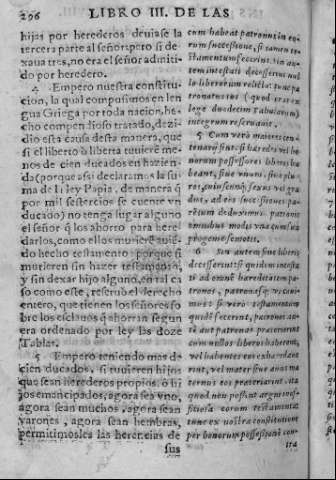 296 LIBRO III. DE LAS
hijos por herederos deuiase la
tercera parte al señor: pero si de-
xaua tres, no era el señor admiti-
do por heredero.
4 Empero nuestra constitu-
cion, la qual compusimos en len
gua Griega por toda nacion, he-
cho compendioso tratado, dezi-
dio esta causa desta manera, que
si el liberto o liberta tuuieré me-
nos de cien ducados en hazien-
da (porque assi declaramos la su-
ma de la ley Papia, de manera q̃
por mil sestercios se cuente vn
ducado) no tenga lugar alguno
el señor q̃ los ahorro para here
darlos, como ellos muieré
do hecho testamento: porque si
murieren sin hazer testamento,
y sin dexar hijo alguno, en tal ca
so como este, reserub el derecho
entero, que tienen los señores so
bre los esclauos q̃ ahorran segun
era ordenado por ley las doze
Tablas.
5 Empero teniendo mas de
cien ducados, si tuuieren hijos
que sean herederos propios, o hi
jos emancipados, agora sea vno,
agora sean muchos, agora sean
varones, agora sean hembras,
permitimosles las herencias de
sus
cum habeat patronus in eo-
rum successione, si tamen te-
stamentum fecerint. Sin au-
tem intestati decesserint nul-
lo liberorum relicto: tunc pa
tronatus ius (quod erat ex
lege duodecim Tabularum)
integrum reseruauit.
5 Cum verò maiores cen-
tenarij sint: si haredes vel bo
norum possessores liberos ha
beant, siue vnum, siue plu-
res, cuiuscunq́; sexus vel gra
dus, ad eos successiones pa-
rentum deduximus, patronis
omnibus modis vna cum sua
progenie semotis.
6 Sin autem sine liberis
decesserint: si quidem intesta
ti ad omne hæreditatem pa-
tronos, patronasq́; vocaui-
mus: si verò testamentum
quidē fecerint, patronos au-
tē aut patronas præterierint
cum nullos liberos haberent,
vel habentes eos exhæreda-
rint, vel mater, siue auus ma
ternus eos præterierit, ita
quod non possint argui inof-
ficiosa eorum testamenta:
tunc ex nostra constitutione
per bonorum possessionē con-
tra